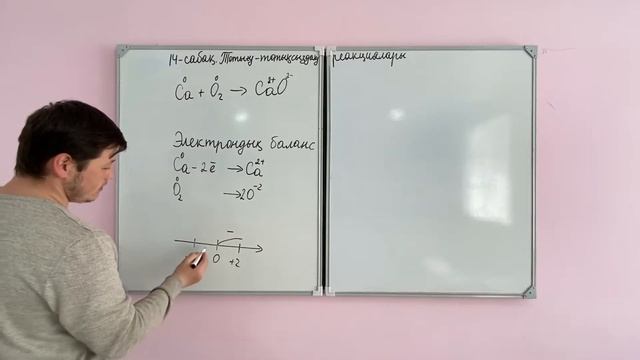 14-сабақ. Тотығу-тотықсыздану реакциялары
Ca⁰ + O₂⁰ → Ca²⁺O²⁻
Электрондық баланс
Ca⁰ - 2ē → Ca²⁺
O₂⁰ → 2O⁻²
−
0 +2